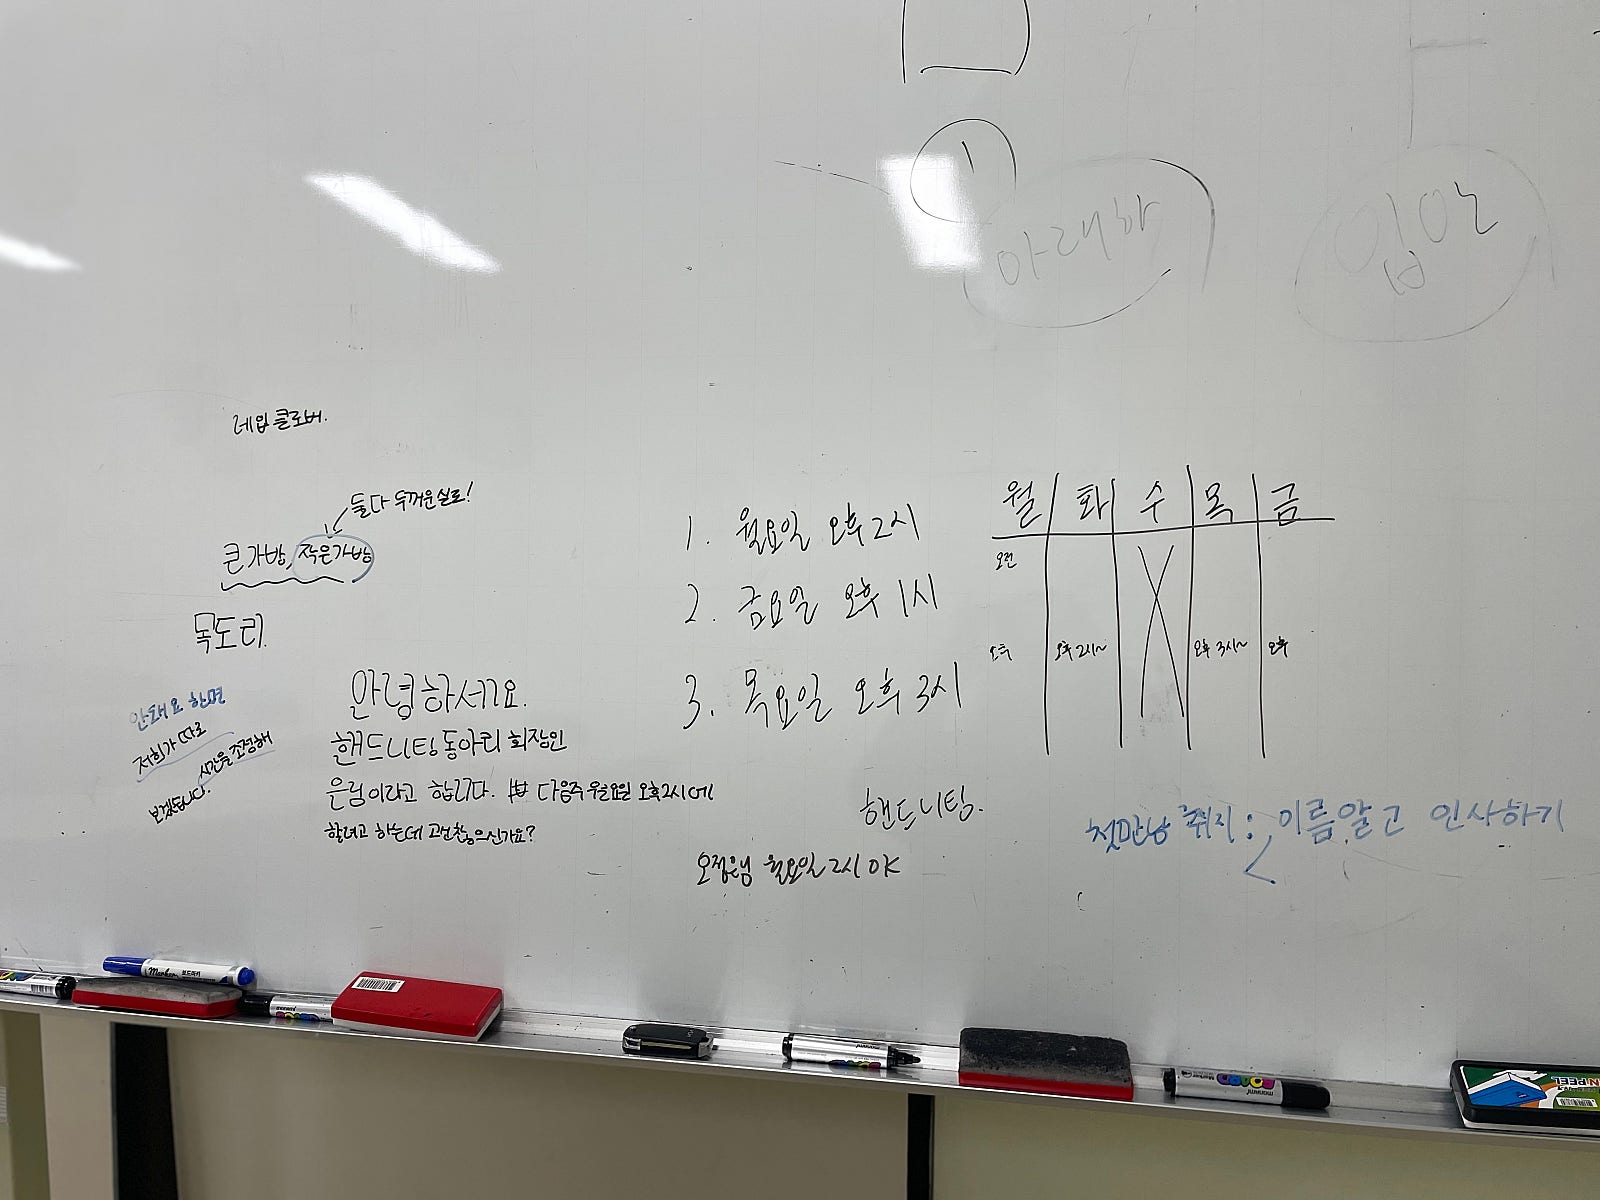 아래하
입안
네잎클로버.
둘다 두꺼운실로!
큰가방, 작은가방
목도리.
안돼요 하면
저희가 따로
시간을 조정해
보겠습니다.
안녕하세요.
핸드니팅동아리 회장인
은링이라고 합니다. 다음주 월요일 오후2시에
할려고 하는데 괜찮으신가요?
1. 월요일 오후 2시
2. 금요일 오후 1시
3. 목요일 오후 3시
핸드니팅.
오정은님 월요일 2시 OK
월 화 수 목 금
오전
X
오후 오후 2시~ 오후 3시~ 오후
첫만남 취지 : 이름알고 인사하기
Marker 보드마카
monami
monami
monami BOARD Marker